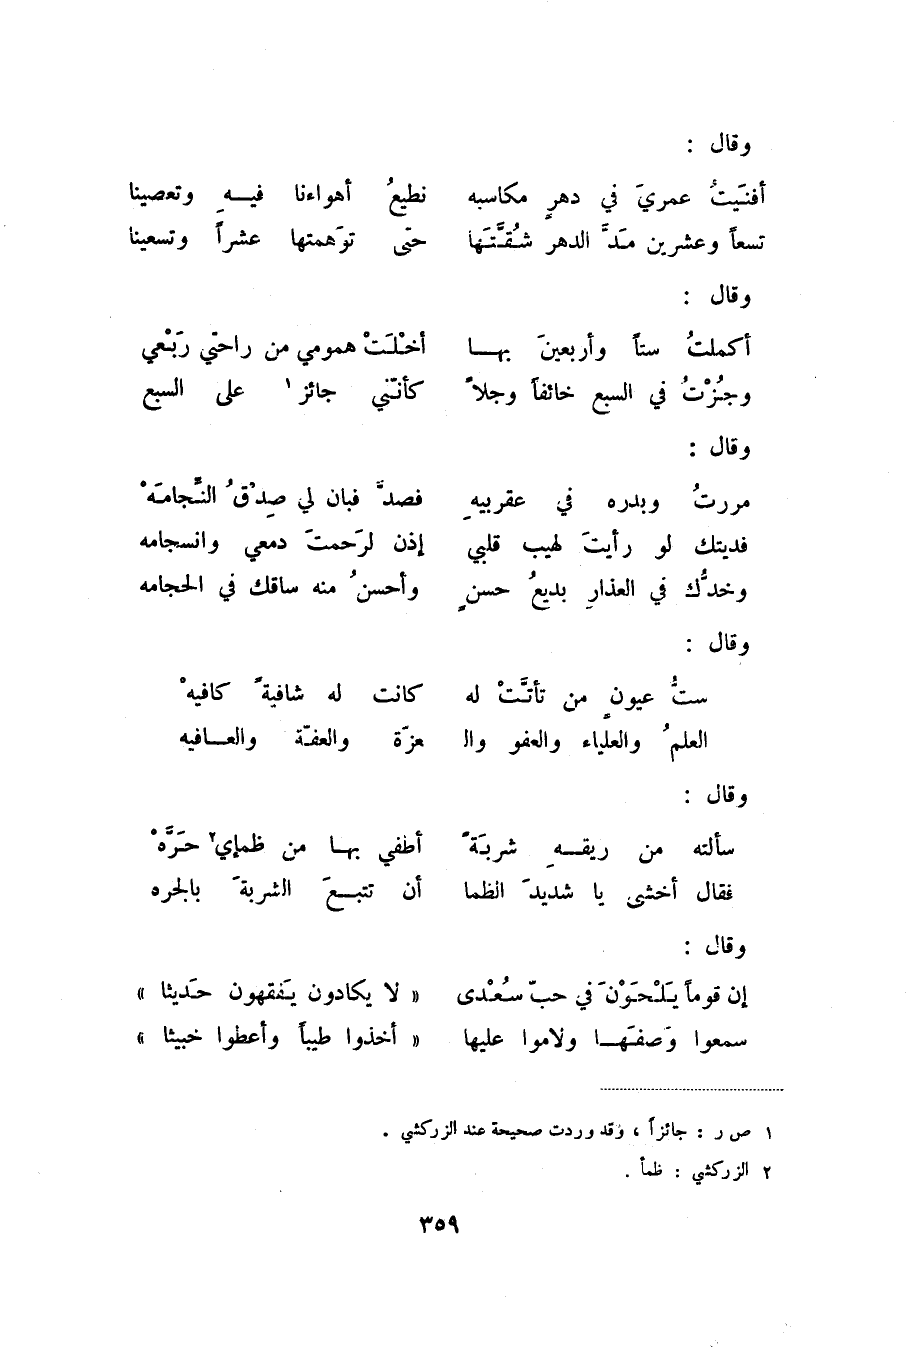 وقال :
أفنَيتُ عمريَ في دهرٍ مكاسبه نطيعُ أهواءنا فيـــه وتعصينا
تسعاً وعشرين مَدَّ الدهر شُقَّتَها حتى توَهمتها عشراً وتسعينا
وقال :
أكملتُ ستاً وأربعينَ بهـــا أخْلَتْ همومي من راحتي رَبْعي
وجُزْتُ في السبع خائفاً وجلاً كأنّني جائز ١ على السبع
وقال :
مررتُ وبدره في عقربيهِ فصدَّ فبان لي صِدْقُ النَّجامَهْ
فديتك لو رأيتَ لهيب قلبي إذن لرَحمتَ دمعي وانسجامه
وخدُّك في العذارِ بديعُ حسنٍ وأحسنُ منه ساقك في الحجامه
وقال :
ستُّ عيونٍ من تأتَّتْ له كانت له شافيةً كافيهْ
العلمُ والعلياء والعفو والـ عزّة والعفّة والعـــافيه
وقال :
سألته من ريقـــهِ شربَةً أطفي بهـا من ظمإي٢ حَرَّهْ
فقال أخشى يا شديدَ الظما أن تتبـــعَ الشربةَ بالجره
وقال :
إن قوماً يَلْحَوْنَ في حبّ سُعْدى « لا يكادون يَفقهون حَديثا »
سمعوا وَصفَهـــا ولاموا عليها « أخذوا طيباً وأعطوا خبيثا »
١ ص ر : جائزاً ، وقد وردت صحيحة عند الزركشي .
٢ الزركشي : ظمأ .
٣٥٩